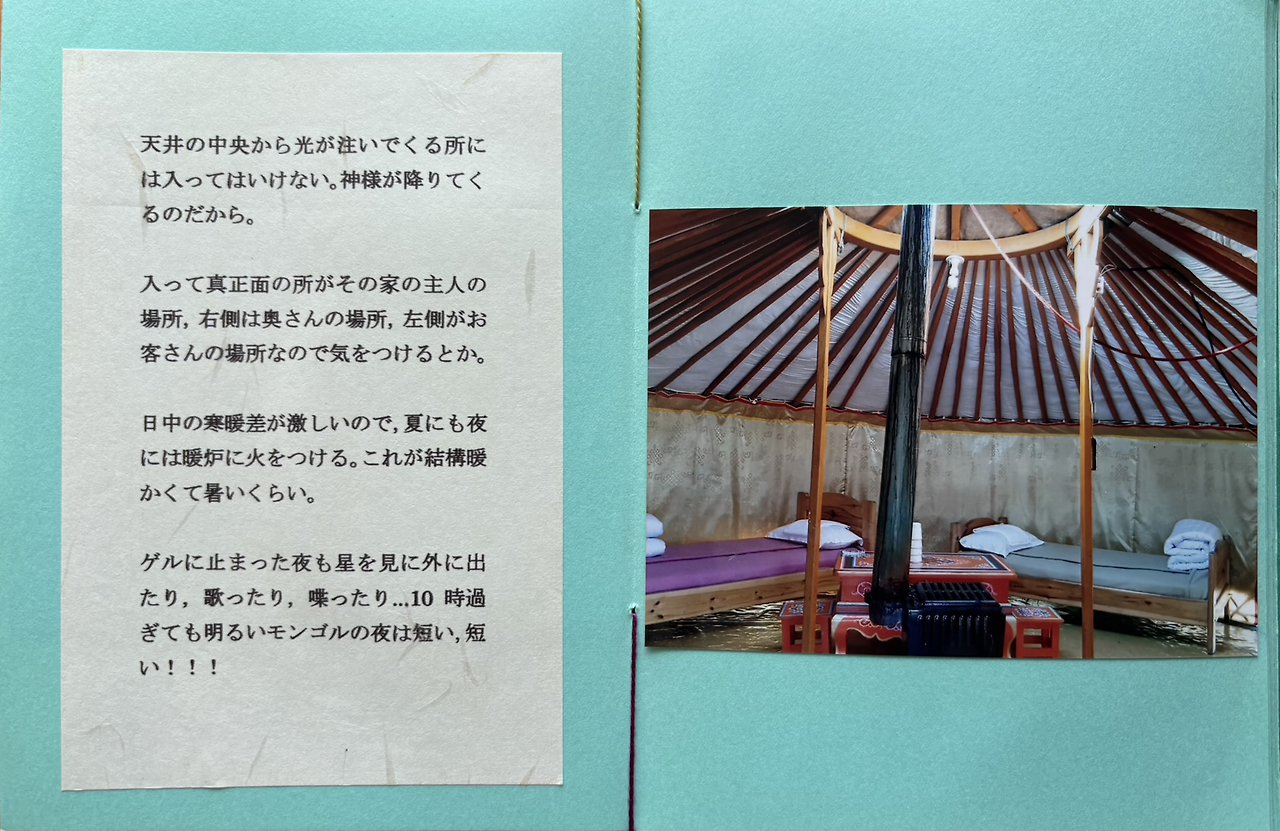 天井の中央から光が注いでくる所に
は入ってはいけない。神様が降りてく
るのだから。
入って真正面の所がその家の主人の
場所, 右側は奥さんの場所, 左側がお
客さんの場所なので気をつけるとか。
日中の寒暖差が激しいので, 夏にも夜
には暖炉に火をつける。これが結構暖
かくて暑いくらい。
ゲルに止まった夜も星を見に外に出
たり, 歌ったり, 喋ったり...10 時過
ぎても明るいモンゴルの夜は短い, 短
い！！！